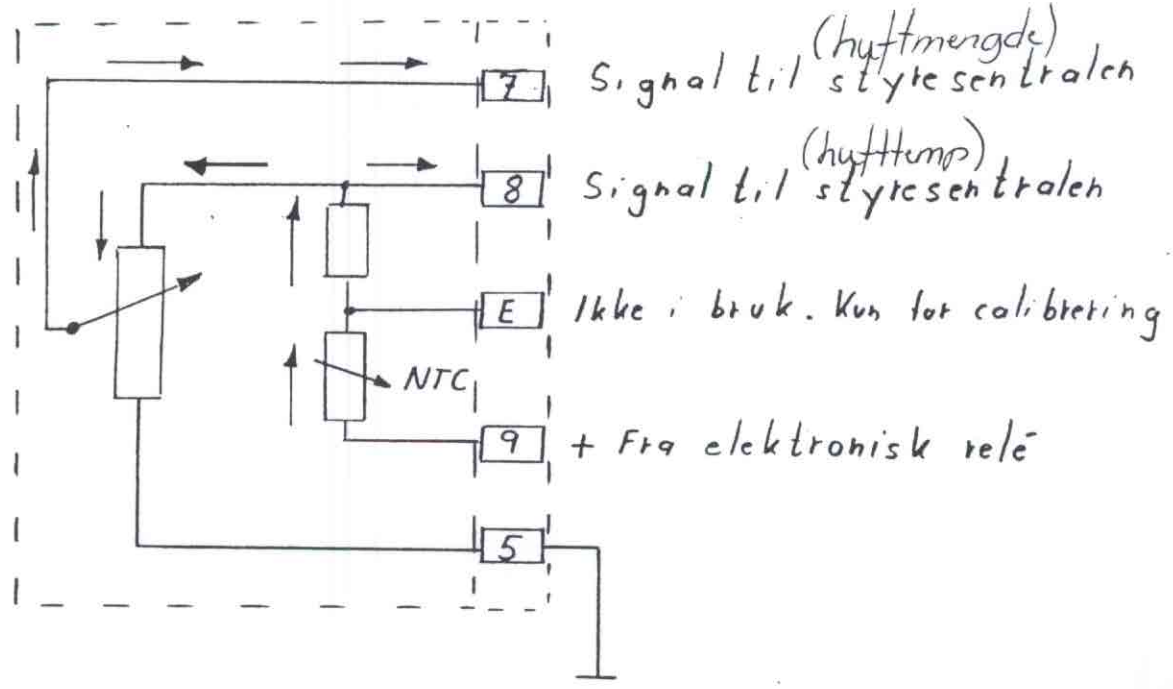 (luftmengde)
7 Signal til styresentralen
(lufttemp)
8 Signal til styresentralen
E Ikke i bruk. Kun for calibrering
NTC
9 + Fra elektronisk relé
5